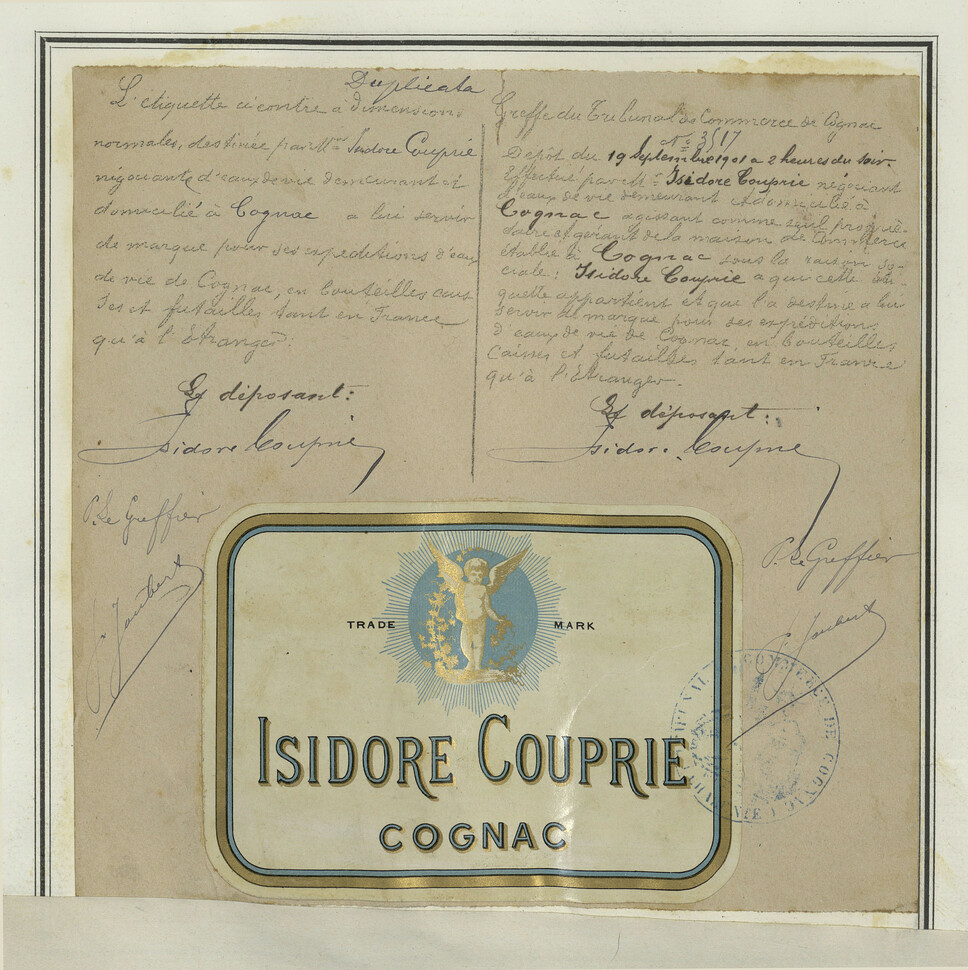 Duplicata
L'étiquette ci contre à dimensions
normales, destinée par Mr Isidore Couprie
négociant d'eaux de vie demeurant et
domicilié à Cognac a lui servir
de marque pour ses expéditions d'eaux
de vie de Cognac, en bouteilles cais
ses et futailles tant en France
qu'à l'Etranger.
Le déposant:
Isidore Couprie
P. Le Greffier
Joubert
Greffe du Tribunal de Commerce de Cognac
N° 3517
Dépôt du 19 Septembre 1901 a 2 heures du soir.
Effectué par M. Isidore Couprie négociant
d'eaux de vie demeurant & domicilié à
Cognac agissant comme seul proprié-
taire et gérant de la maison de Commerce
établie à Cognac sous la raison so-
ciale: Isidore Couprie a qui cette éti-
quette appartient et qui l'a destine a lui
servir de marque pour ses expéditions
d'eaux de vie de Cognac, en bouteilles,
Caisses et futailles tant en France
qu'à l'Etranger.
Le déposant:
Isidore Couprie
P. Le Greffier
Joubert
TRADE MARK
ISIDORE COUPRIE
COGNAC
TRIBUNAL DE COMMERCE DE COGNAC